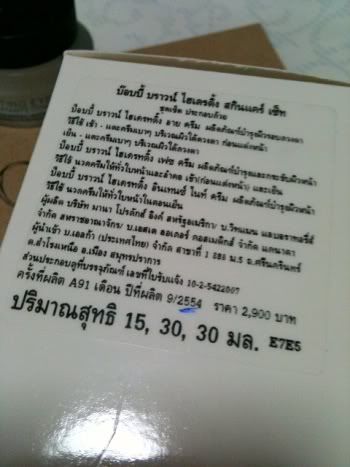 บ๊อบบี้ บราวน์ ไฮเดรติ้ง สกินแคร์ เซ็ท
ชุดเซ็ต ประกอบด้วย
บ๊อบบี้ บราวน์ ไฮเดรทติ้ง อาย ครีม ผลิตภัณฑ์บำรุงผิวรอบดวงตา
วิธีใช้ เช้า - แตะครีมเบาๆ บริเวณผิวใต้ดวงตา ก่อนแต่งหน้า
เย็น - แตะครีมเบาๆ บริเวณผิวใต้ดวงตา
บ๊อบบี้ บราวน์ ไฮเดรทติ้ง เฟซ ครีม ผลิตภัณฑ์บำรุงและกระชับผิวหน้า
วิธีใช้ นวดครีมให้ทั่วใบหน้าและลำคอ เช้า(ก่อนแต่งหน้า) และเย็น
บ๊อบบี้ บราวน์ ไฮเดรทติ้ง อินเทนซ์ ไนท์ ครีม ผลิตภัณฑ์บำรุงผิวหน้า
วิธีใช้ นวดครีมให้ทั่วใบหน้าในตอนเย็น
ผู้ผลิต บริษัท มานา โปรดักส์ อิงค์ สหรัฐอเมริกา/ บ.วิทแมน แลบอราทอรีส์
จำกัด สหราชอาณาจักร/ บ.เอสเต ลอเดอร์ คอสเมติกส์ จำกัด แคนาดา
ผู้นำเข้า บ.เอลก้า (ประเทศไทย) จำกัด สาขาที่ 1 886 ม.5 ถ.ศรีนครินทร์
ต.สำโรงเหนือ อ.เมือง สมุทรปราการ
ส่วนประกอบดูที่บรรจุภัณฑ์ เลขที่ใบรับแจ้ง 10-2-5422007
ครั้งที่ผลิต A91 เดือน ปีที่ผลิต 9/2554 ราคา 2,900 บาท
ปริมาณสุทธิ 15, 30, 30 มล. E7E5